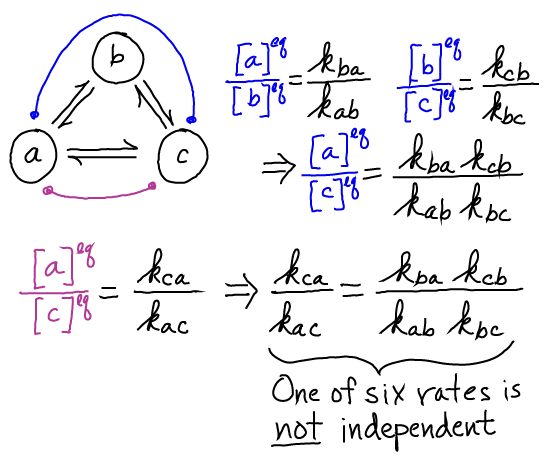 b
a
c
[a]^eq / [b]^eq = k_ba / k_ab
[b]^eq / [c]^eq = k_cb / k_bc
⇒ [a]^eq / [c]^eq = k_ba k_cb / k_ab k_bc
[a]^eq / [c]^eq = k_ca / k_ac ⇒ k_ca / k_ac = k_ba k_cb / k_ab k_bc
One of six rates is
not independent